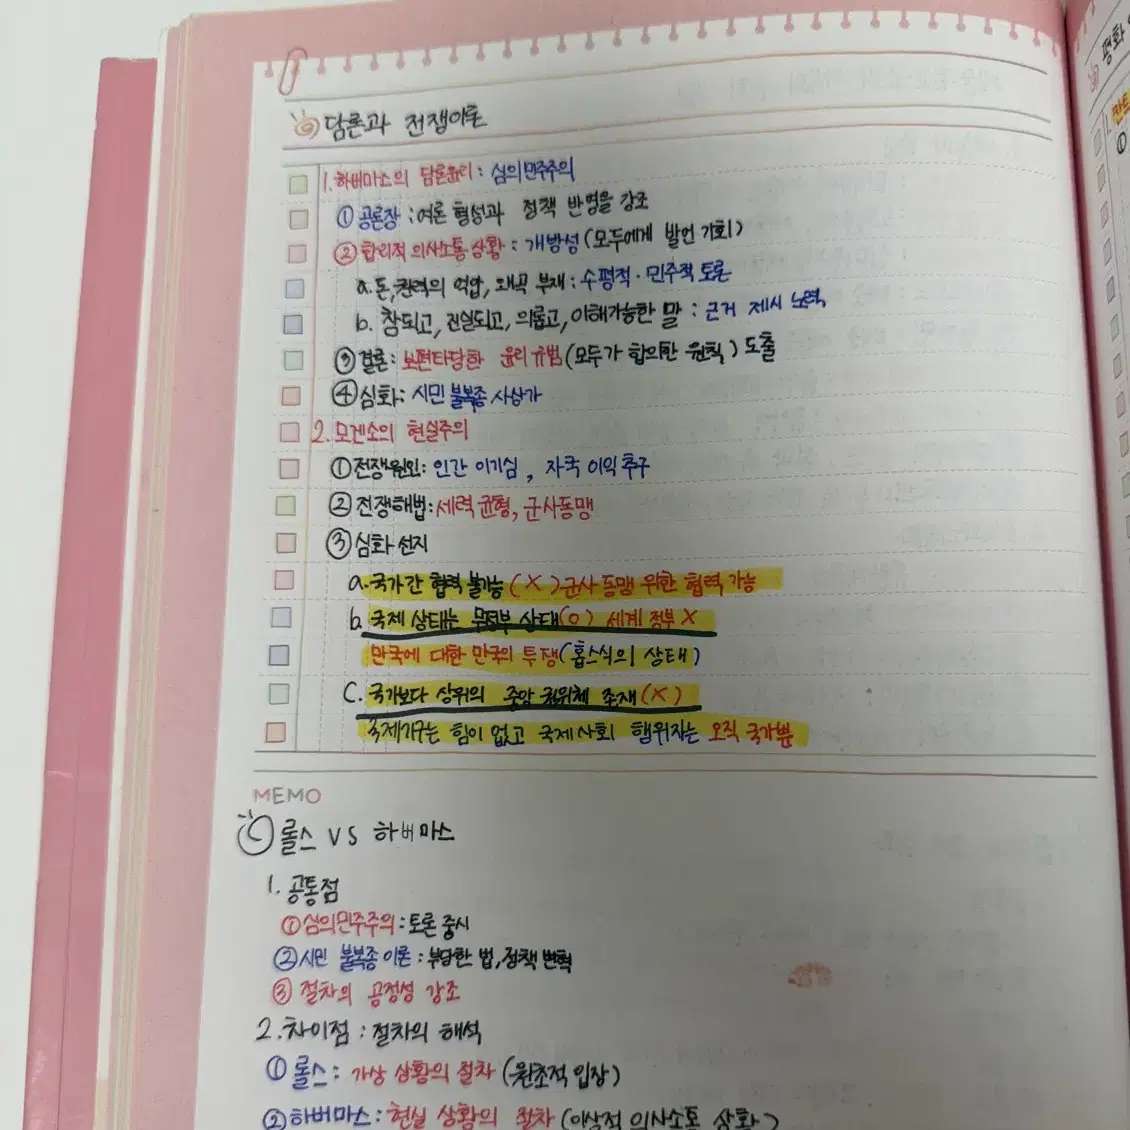 담론과 전쟁이론
1. 하버마스의 담론윤리 : 심의민주주의
① 공론장 : 여론 형성과 정책 반영을 강조
② 합리적 의사소통 상황 : 개방성 (모두에게 발언 기회)
a. 돈, 권력의 억압, 왜곡 부재 : 수평적 · 민주적 토론
b. 참되고, 진실되고, 의롭고, 이해가능한 말 : 근거 제시 노력
③ 결론 : 보편타당한 윤리규범 (모두가 합의한 원칙) 도출
④ 심화 : 시민 불복종 사상가
2. 모겐소의 현실주의
① 전쟁원인 : 인간 이기심, 자국 이익 추구
② 전쟁해법 : 세력 균형, 군사동맹
③ 심화 선지
a. 국가간 협력 불가능 (X) 군사 동맹 위한 협력 가능
b. 국제 상태는 무정부 상태 (O) 세계 정부 X
만국에 대한 만국의 투쟁 (홉스식의 상태)
C. 국가보다 상위의 중앙 권위체 존재 (X)
국제기구는 힘이 없고 국제사회 행위자는 오직 국가뿐
MEMO
롤스 VS 하버마스
1. 공통점
① 심의민주주의 : 토론 중시
② 시민 불복종 이론 : 부당한 법, 정책 변혁
③ 절차의 공정성 강조
2. 차이점 : 절차의 해석
① 롤스 : 가상 상황의 절차 (원초적 입장)
② 하버마스 : 현실 상황의 절차 (이상적 의사소통 상황)
평화
칸트
①